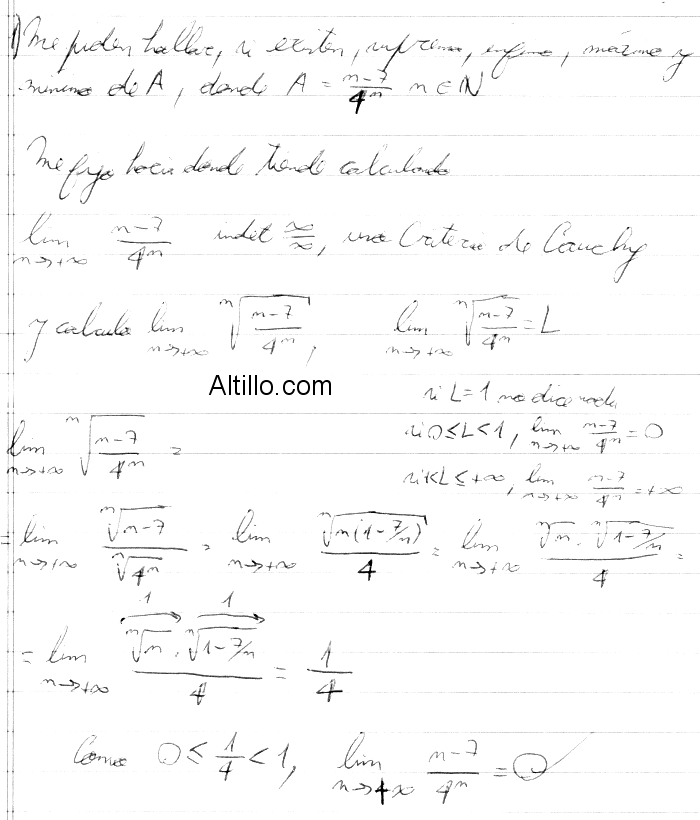 1) Me piden hallar, si existen, supremo, ínfimo, máximo y
mínimo de A, donde A = (n-7)/4^n n ∈ ℕ
Me fijo hacia donde tiende calculando
lim n→+∞ (n-7)/4^n indet ∞/∞, uso Criterio de Cauchy
y calculo lim n→+∞ ⁿ√((n-7)/4^n), lim n→+∞ ⁿ√((n-7)/4^n) = L
Altillo.com
si L=1 no dice nada
si 0≤L<1, lim n→+∞ (n-7)/4^n = 0
si 1<L≤+∞, lim n→+∞ (n-7)/4^n = +∞
lim n→+∞ ⁿ√((n-7)/4^n) =
= lim n→+∞ ⁿ√(n-7)/ⁿ√(4^n) = lim n→+∞ ⁿ√(n(1-7/n))/4 = lim n→+∞ (ⁿ√n . ⁿ√(1-7/n))/4 =
1 1
= lim n→+∞ (ⁿ√n . ⁿ√(1-7/n))/4 = 1/4
Como 0 ≤ 1/4 < 1, lim n→+∞ (n-7)/4^n = 0